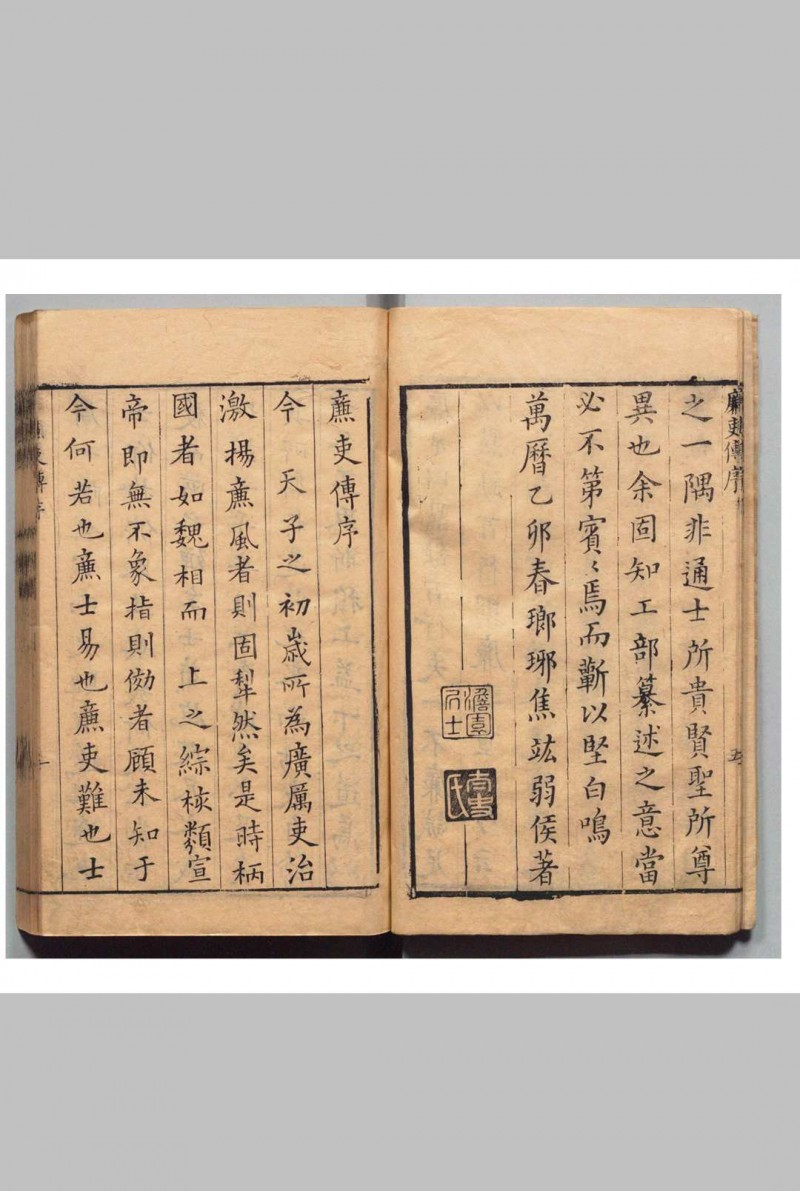 廉吏傳序
之一隅非通士所貴賢聖所尊
異也余固知工部纂述之意當
必不第賓〻焉而蘄以堅白鳴
萬曆乙卯春瑯琊焦竑弱侯著
澹園居士
五
廉吏傳序
今天子之初歲所為廣厲吏治
激揚廉風者則固犁然矣是時柄
國者如魏相而上之綜核類宣
帝即無不象指則傚者顧未知于
今何若也廉士易也廉吏難也士
吏傳序
一